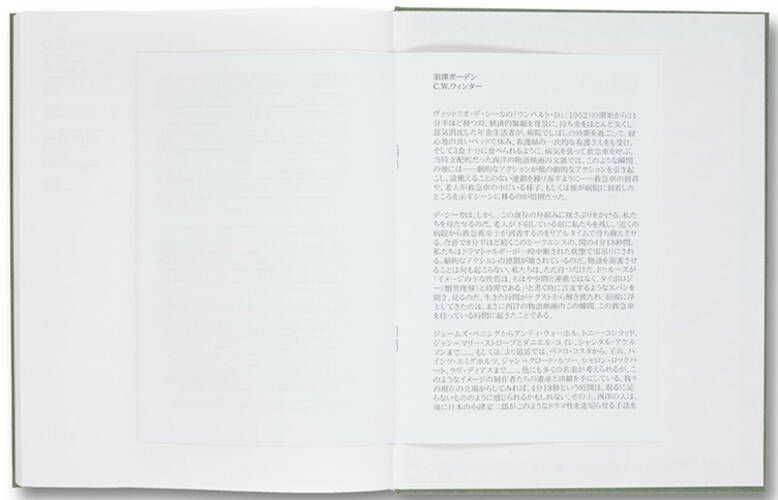 羽澤ガーデン
C.W.ウィンター
ヴィットリオ・デ・シーカの『ウンベルト・D』(1952)の開始から31
分半ほど経つ時、経済的緊縮を背景に、持ち金をほとんど失くし
意気消沈した年金生活者が、病院でしばしの時間を過ごして、寝
心地の良いベッドで休み、看護婦の一次的な看護さえをも受け、
そして3食十分に食べられるように、病気を装って救急車を呼ぶ。
当時支配的だった西洋の物語映画の文脈では、このような瞬間
の後には──劇的なアクションが他の劇的なアクションを引き起
こし、途絶えることのない連鎖を繰り返すように──救急車の到着
や、老人が救急車の中にいる様子、もしくは彼が病院に到着した
ところを示すシーンに移るのが慣例だった。
デ・シーカは、しかし、この既存の枠組みに揺さぶりをかける。私た
ちを待たせるのだ。老人が下宿している宿に私たちを残し、近くの
病院から救急救命士が到着するのをリアルタイムで待ち構えさせ
る。合計で8分半ほど続くこのシークエンスの、間の4分18秒間、
私たちはドラマトゥルギーが一時中断された状態で宙吊りにされ
る。劇的なアクションの連鎖が壊されているのだ。物語を前進させ
ることは何も起こらない。私たちは、ただ待つだけだ。ドゥルーズが
「イメージの主な性質は、もはや空間と運動ではなく、タイポロジ
ー(類型理解)と時間である」と書く時に言及するようなスパンを
聞き、見るのだ。生きた時間がテクストから解き放たれ、前面に浮
上してきたのは、まさに西洋の物語映画のこの瞬間、この救急車
を待っている時間に起きたことである。
ジェームズ・ベニングからアンディ・ウォーホル、トニー・コンラッド、
ジャン=マリー・ストローブとダニエル・ユイレ、シャンタル・アケル
マンまで___。もしくは、より最近では、ペドロ・コスタから、王兵、ハ
インツ・エミグホルツ、ジャン=クロード・ルソー、シャロン・ロックハ
ート、ラヴ・ディアスまで___。他にも多くの名前が考えられるが、こ
のようなイメージの制作者たちの遺産と功績を手にしている、我々
の現在の立場からしてみれば、4分18秒という時間は、取るに足
らないもののように感じられるかもしれない。その上、西洋の人は、
後に日本の小津安二郎がこのようなドラマ性を途切らせる手法を